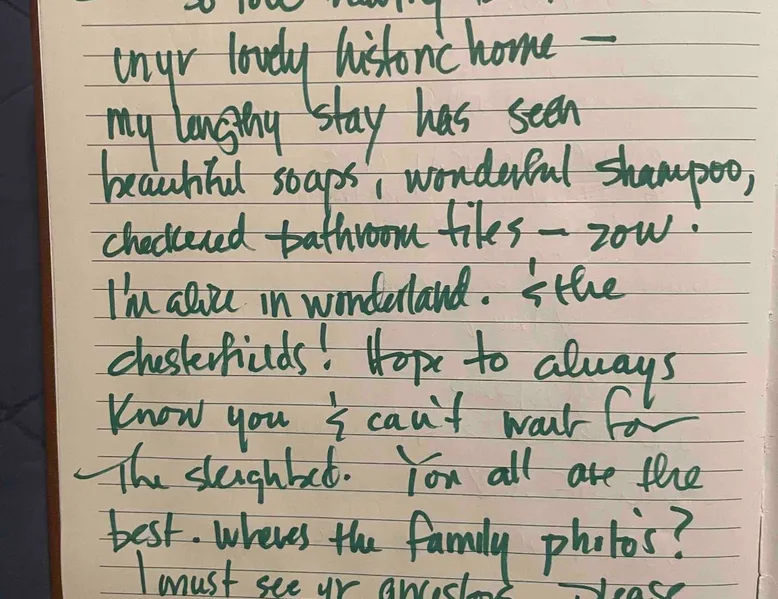 in yr lovely historic home —
my lengthy stay has seen
beautiful soaps, wonderful shampoo,
checkered bathroom tiles — zow.
I'm alice in wonderland. & the
chesterfields! Hope to always
know you & can't wait for
the sleighbed. You all are the
best. Wheres the family photo's?
I must see yr ancestors please